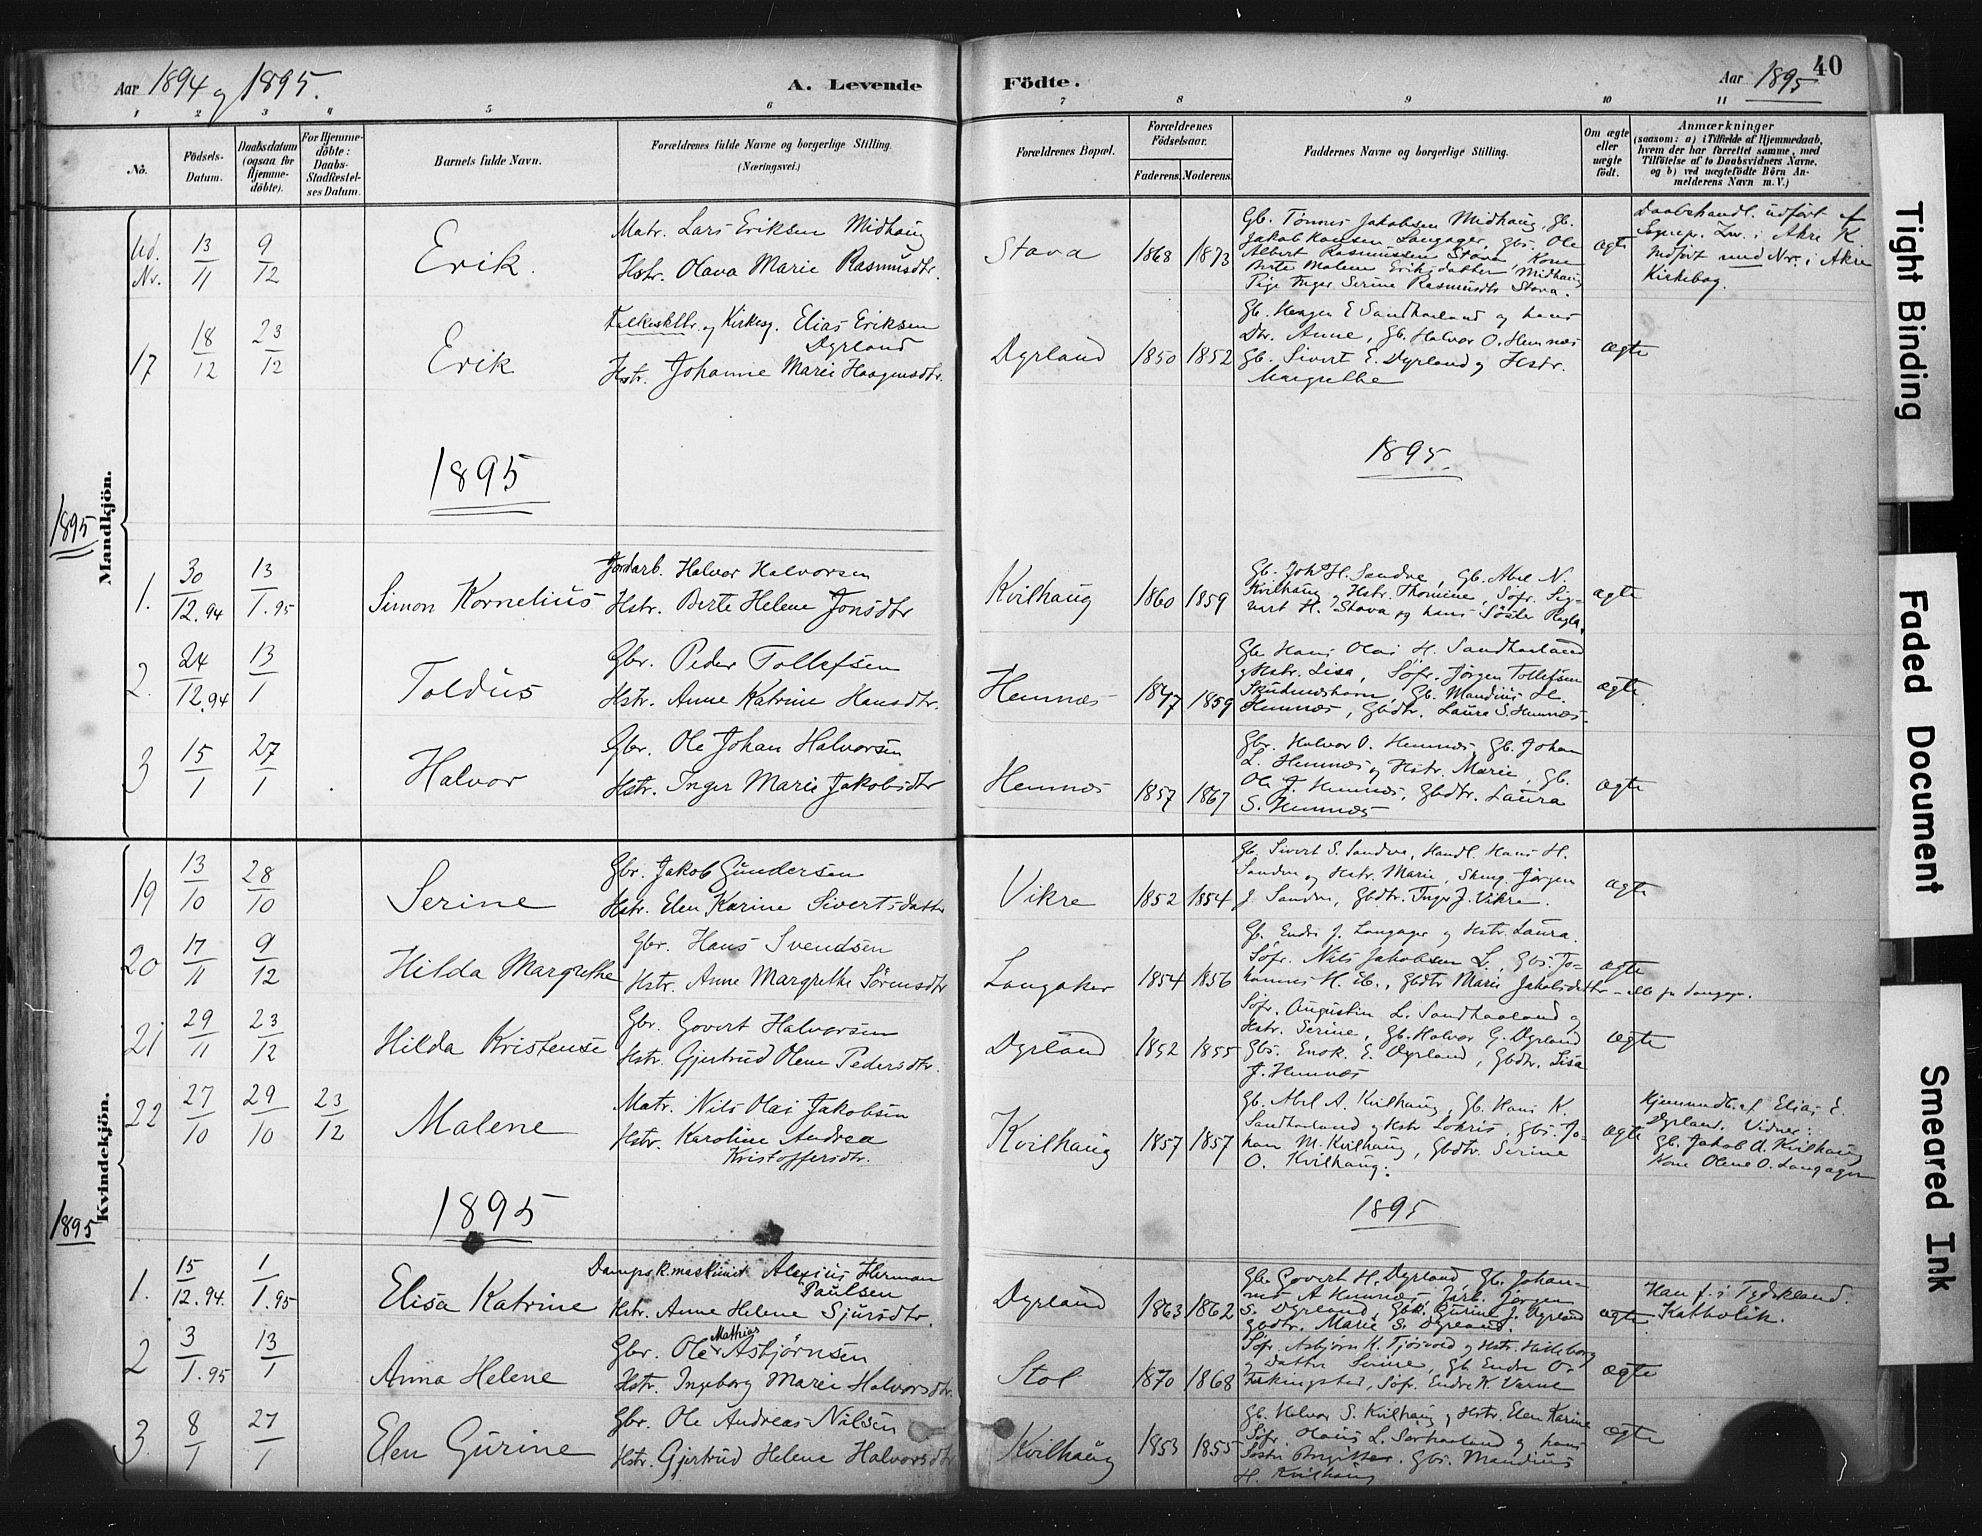 Aar 1894 og 1895.
A. Levende
Födte.
Aar 1895
40
1 2 3 4 5 6 7 8 9 10 11
No.
Födsels-
Datum.
Daabsdatum
(ogsaa for
Hjemme-
döbte).
For Hjemme-
döbte:
Daabs-
Stadfæstel-
ses Datum.
Barnets fulde Navn.
Forældrenes fulde Navne og borgerlige Stilling.
(Næringsvei.)
Forældrenes Bopæl.
Forældrenes
Födselsaar.
Faderens. Moderens.
Faddernes Navne og borgerlige Stilling.
Om ægte
eller
uægte
födt.
Anmærkninger
(saasom: a) i Tilfælde af Hjemmedaab,
hvem der har forrettet samme, med
Tilföielse af to Daabsvidners Navne,
og b) ved uægtefödte Börn An-
melderens Navn m. V.)
Mandkjön.
1895
Ud.
Nr.
13/11
9/12
Erik.
Matr. Lars Eriksen Midhaug
Hstr. Olava Marie Rasmusdtr.
Stava
1868 1873
Gb. Tønnes Jakobsen Midhaug, Gb.
Jakob Hansen Langager, Gbs. Ole
Albert Rasmussen Stava, Kone
Berte Malene Eriksdatter Midhaug
Pige Inger Serine Rasmusdtr Stava.
ægte
Daabshandl. udført af
Sognepr. i Akre K.
Indført med Nr. i Akre
Kirkebog.
17
18/12
23/12
Erik
Folkesklr. og Kirkesg. Elias Eriksen
Dyrland
Hstr. Johanne Marie Haagensdtr.
Dyrland
1850 1852
Gb. Haagen E Sandhaaland og hans
Dtr. Anne, Gb. Halvor O. Hemnæs
Gb. Sivert E. Dyrland og Hstr.
Margrethe
ægte
1895
1895.
1.
30/12.94
13/1.95
Simon Kornelius
Jordarb. Halvor Halvorsen
Hstr. Berte Helene Jonsdtr
Kvilhaug
1860 1859
Gb. Johs H. Sandve, Gb. Abel N.
Kvilhaug og Hstr. Thomine, Søfr. Sig-
vart H. Stava og hans Søster Regla.
ægte
2.
24/12.94
13/1
Toldus
Gbr. Peder Tollefsen
Hstr. Anne Katrine Hansdtr.
Hemnæs
1847 1859
Gb. Hans Olai H. Sandhaaland
og Hstr. Lisa, Søfr. Jørgen Tollefsen
Skudneshavn, Gb. Mandius H.
Hemnæs, Gbdtr. Laura S. Hemnæs.
ægte
3
15/1
27/1
Halvor
Gbr. Ole Johan Halvorsen
Hstr. Inger Marie Jakobsdtr
Hemnæs
1857 1867
Gbr. Halvor O. Hemnæs, Gb. Johan
L. Hemnæs og Hstr. Marie, Gb.
Ole J. Hemnæs, Gbdtr. Laura
S. Hemnæs
ægte
Kvindekjön.
1895
19
13/10
28/10
Serine
Gbr. Jakob Gundersen
Hstr. Elen Karine Sivertsdatter
Vikre
1852 1854
Gb. Sivert S. Sandve, Handl. Hans H.
Sandve og Hstr. Marie, Jørgen
J. Sandve, Gbdtr. Inger J. Vikre.
ægte
20
17/11
9/12
Hilda Margrethe
Gbr. Hans Svendsen
Hstr. Anne Margrethe Sørensdtr
Langaker
1854 1856
Gb. Endre J. Langager og Hstr. Laura.
Søfr. Nils Jakobsen L., Gbs. Jo-
hannes H. ib., Gbdtr Marie Jakobsdatter – alle fra Langager.
ægte
21
29/11
23/12
Hilda Kristense
Gbr. Govert Halvorsen
Hstr. Gjertrud Olene Pedersdtr.
Dyrland
1852 1855
Søfr. Augustin L. Sandhaaland og
Hstr. Serine, Gb. Halvor G. Dyrland
Gbs. Enok E. Dyrland, Gbdtr. Lisa
J. Hemnæs
ægte
22
27/10
29/10
23/12
Malene
Matr. Nils Olai Jakobsen
Hstr. Karoline Andrea
Kristoffersdtr.
Kvilhaug
1857 1857
Gb. Abel A. Kvilhaug, Gb. Hans K.
Sandhaaland og Hstr Lokris, Gbs. Jo-
han M. Kvilhaug, Gbdtr. Serine
O. Kvilhaug.
ægte
Hjemmedbt. af Elias E.
Dyrland. Vidner:
Gb. Jakob A. Kvilhaug
Kone Olene O. Langager
1895
1895
1.
15/12.94.
1/1.95
Elisa Katrine
Dampsk.maskinist Alexius Herman
Paulsen
Hstr. Anne Helene Sjursdtr.
Dyrland
1863 1862
Gb. Govert H. Dyrland, Gb. Johan-
nes A Hemnæs, Jarb. Jørgen
S. Dyrland, Gbk. Gurine J. Dyrland
Gbdtr. Marie S. Dyrland.
ægte
Han f. i Tydskland
Katholik.
2
3/1.95
13/1
Anna Helene
Gbr. Ole Mathias Asbjørnsen
Hstr. Ingeborg Marie Halvorsdtr.
Stol
1870 1868
Søfr. Asbjørn K. Tjøsvold og Hstr. Hilleborg
og Datter Serine, Gb. Endre O.
Ferkingstad, Søfr. Endre K. Varne
ægte
3.
8/1
27/1
Elen Gurine
Gbr. Ole Andreas Nilsen
Hstr. Gjertrud Helene Halvorsdtr
Kvilhaug
1853 1855
Gb. Halvor S. Kvilhaug og Hstr. Elen Karine
Søfr. Olaus L. Sørhaaland og hans
Søster Birgitte. Gbs. Mandius
H. Kvilhaug
ægte
Tight Binding
Faded Document
Smeared Ink